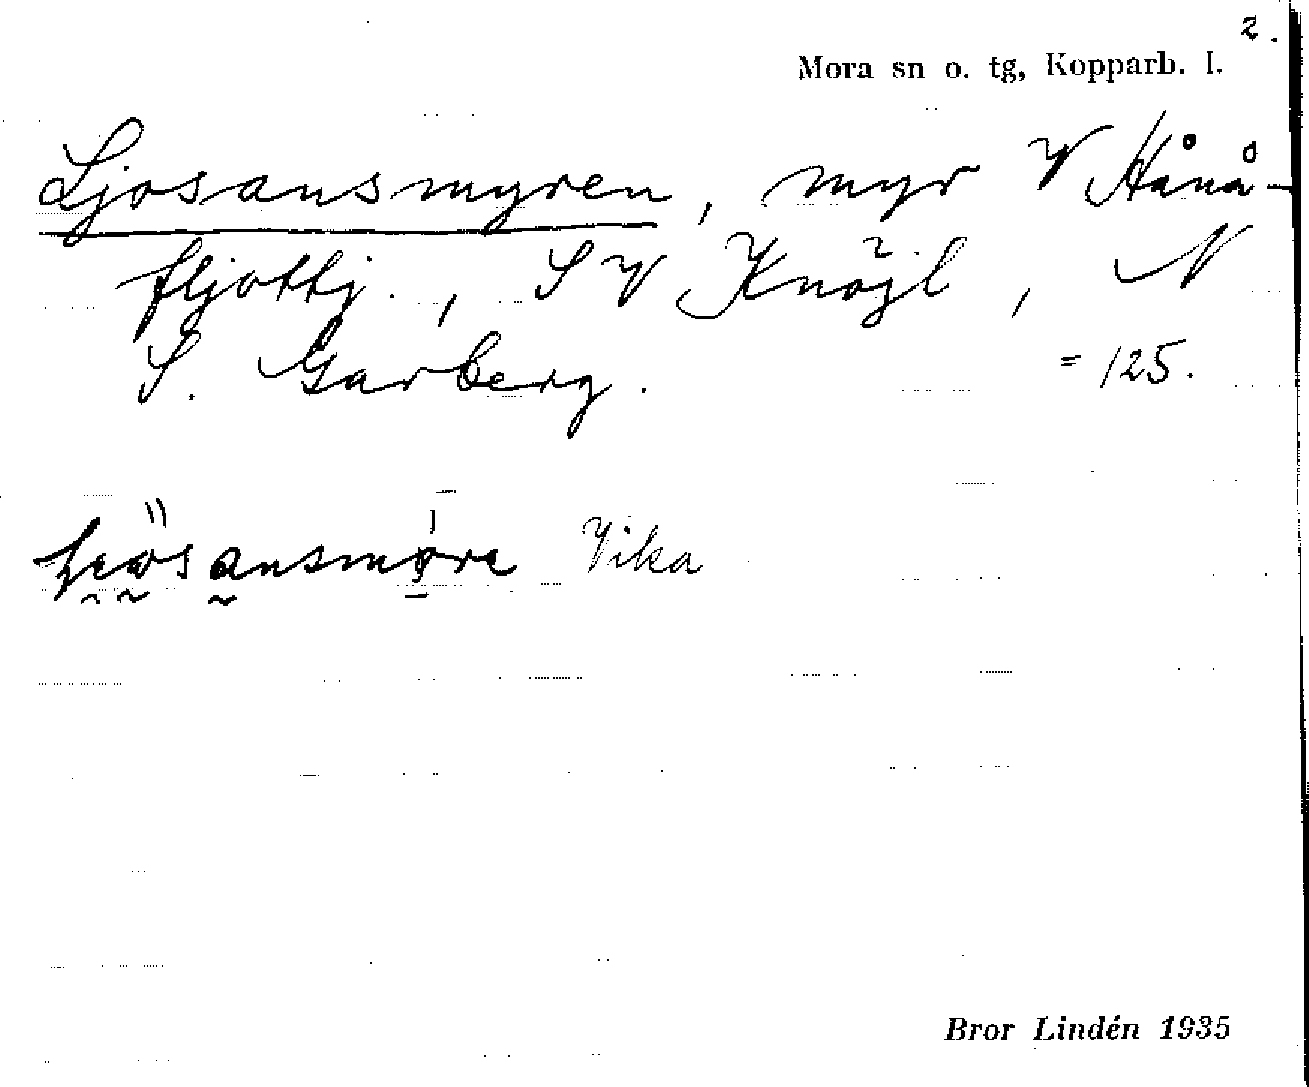 2.
Mora sn o. tg, Kopparb. l.
Ljosansmyren, myr V Hånå-
fljottj., SV Knöjl, N
S. Garberg. = 125.
Vika
Bror Lindén 1935